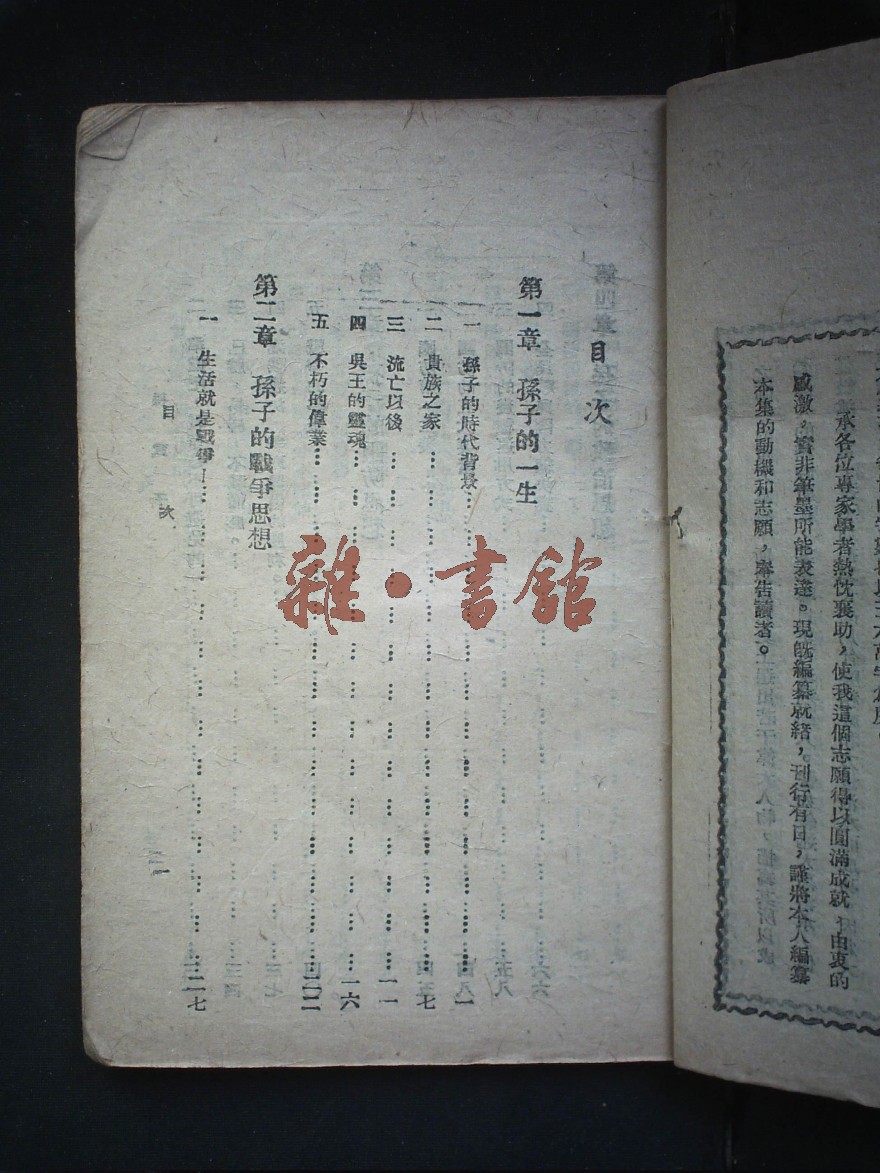 承各位專家學者熱忱襄助，使我這個志願得以圓滿成就，由衷的
感激，實非筆墨所能表達。現旣編纂就緒，刊行有日，謹將本人編纂
本集的動機和志願，奉告讀者。
目次
第一章 孫子的一生
一 孫子的時代背景………一
二 貴族之家………七
三 流亡以後………一一
四 吳王的靈魂………一六
五 不朽的偉業………
第二章 孫子的戰爭思想
一 生活就是戰爭………二七
目次
一
雜·書館